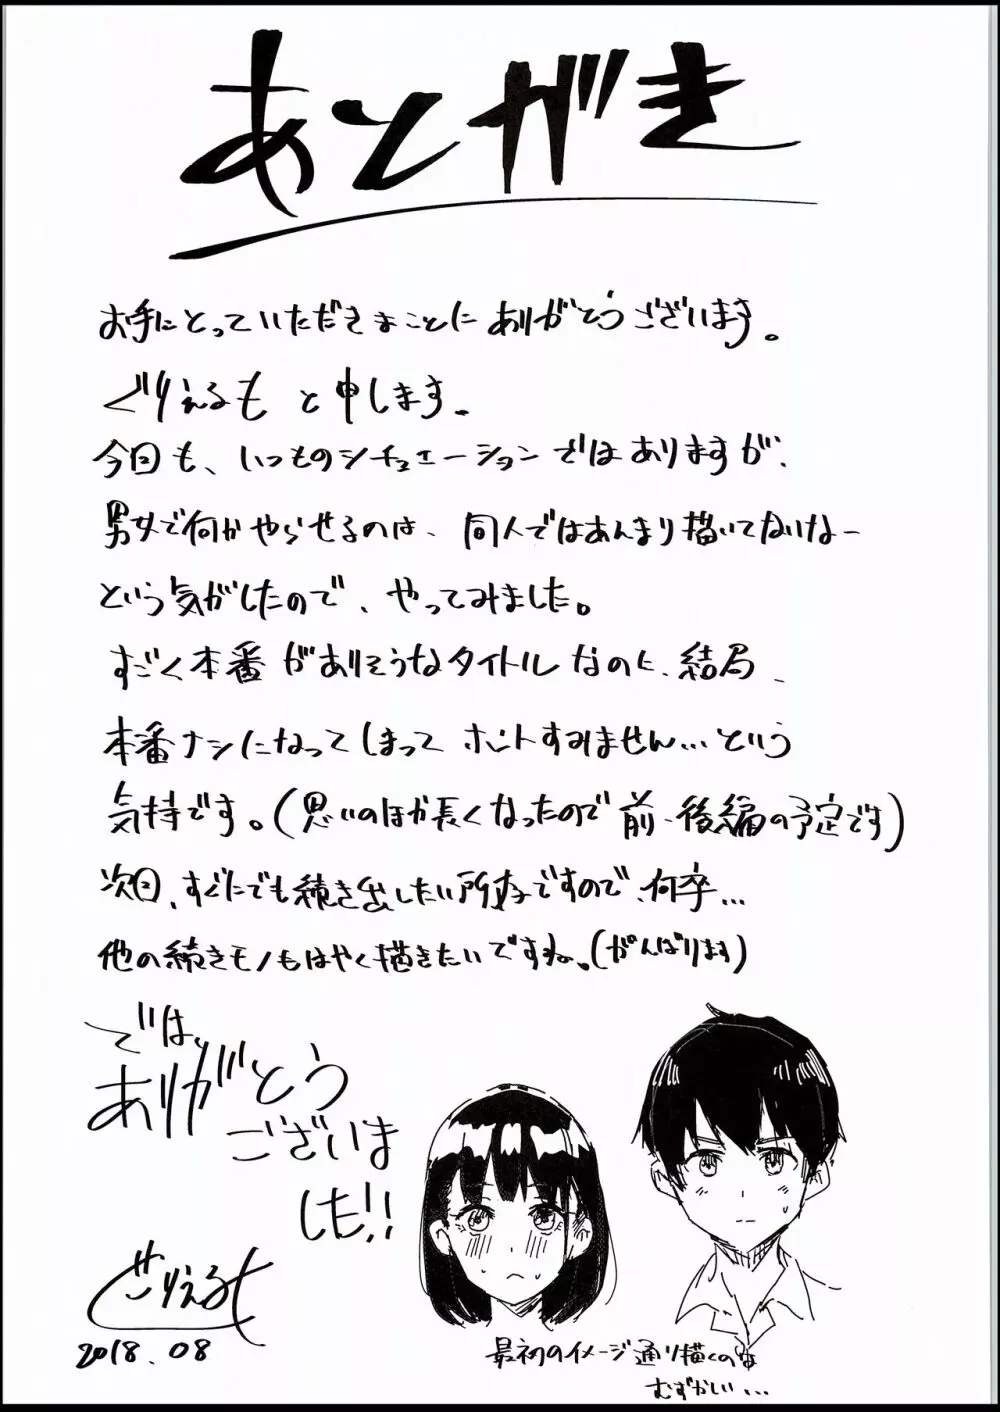 あとがき
お手にとっていただきまことにありがとうございます。
ぐりえるも と申します。
今回も、いつものシチュエーションではありますが、
男女で何かやらせるのは、同人ではあんまり描いてないなー
という気がしたので、やってみました。
すごく本番がありそうなタイトルなのに、結局、
本番ナシになってしまって ホントすみません…という
気持です。(思いのほか長くなったので前、後編の予定です)
次回、すぐにでも続き出したい所存ですので、何卒…
他の続きモノもはやく描きたいですね。(がんばります)
では、
ありがとう
ございま
した!!
ぐりえるも
2018.08
最初のイメージ通り描くのは
むずかしい…